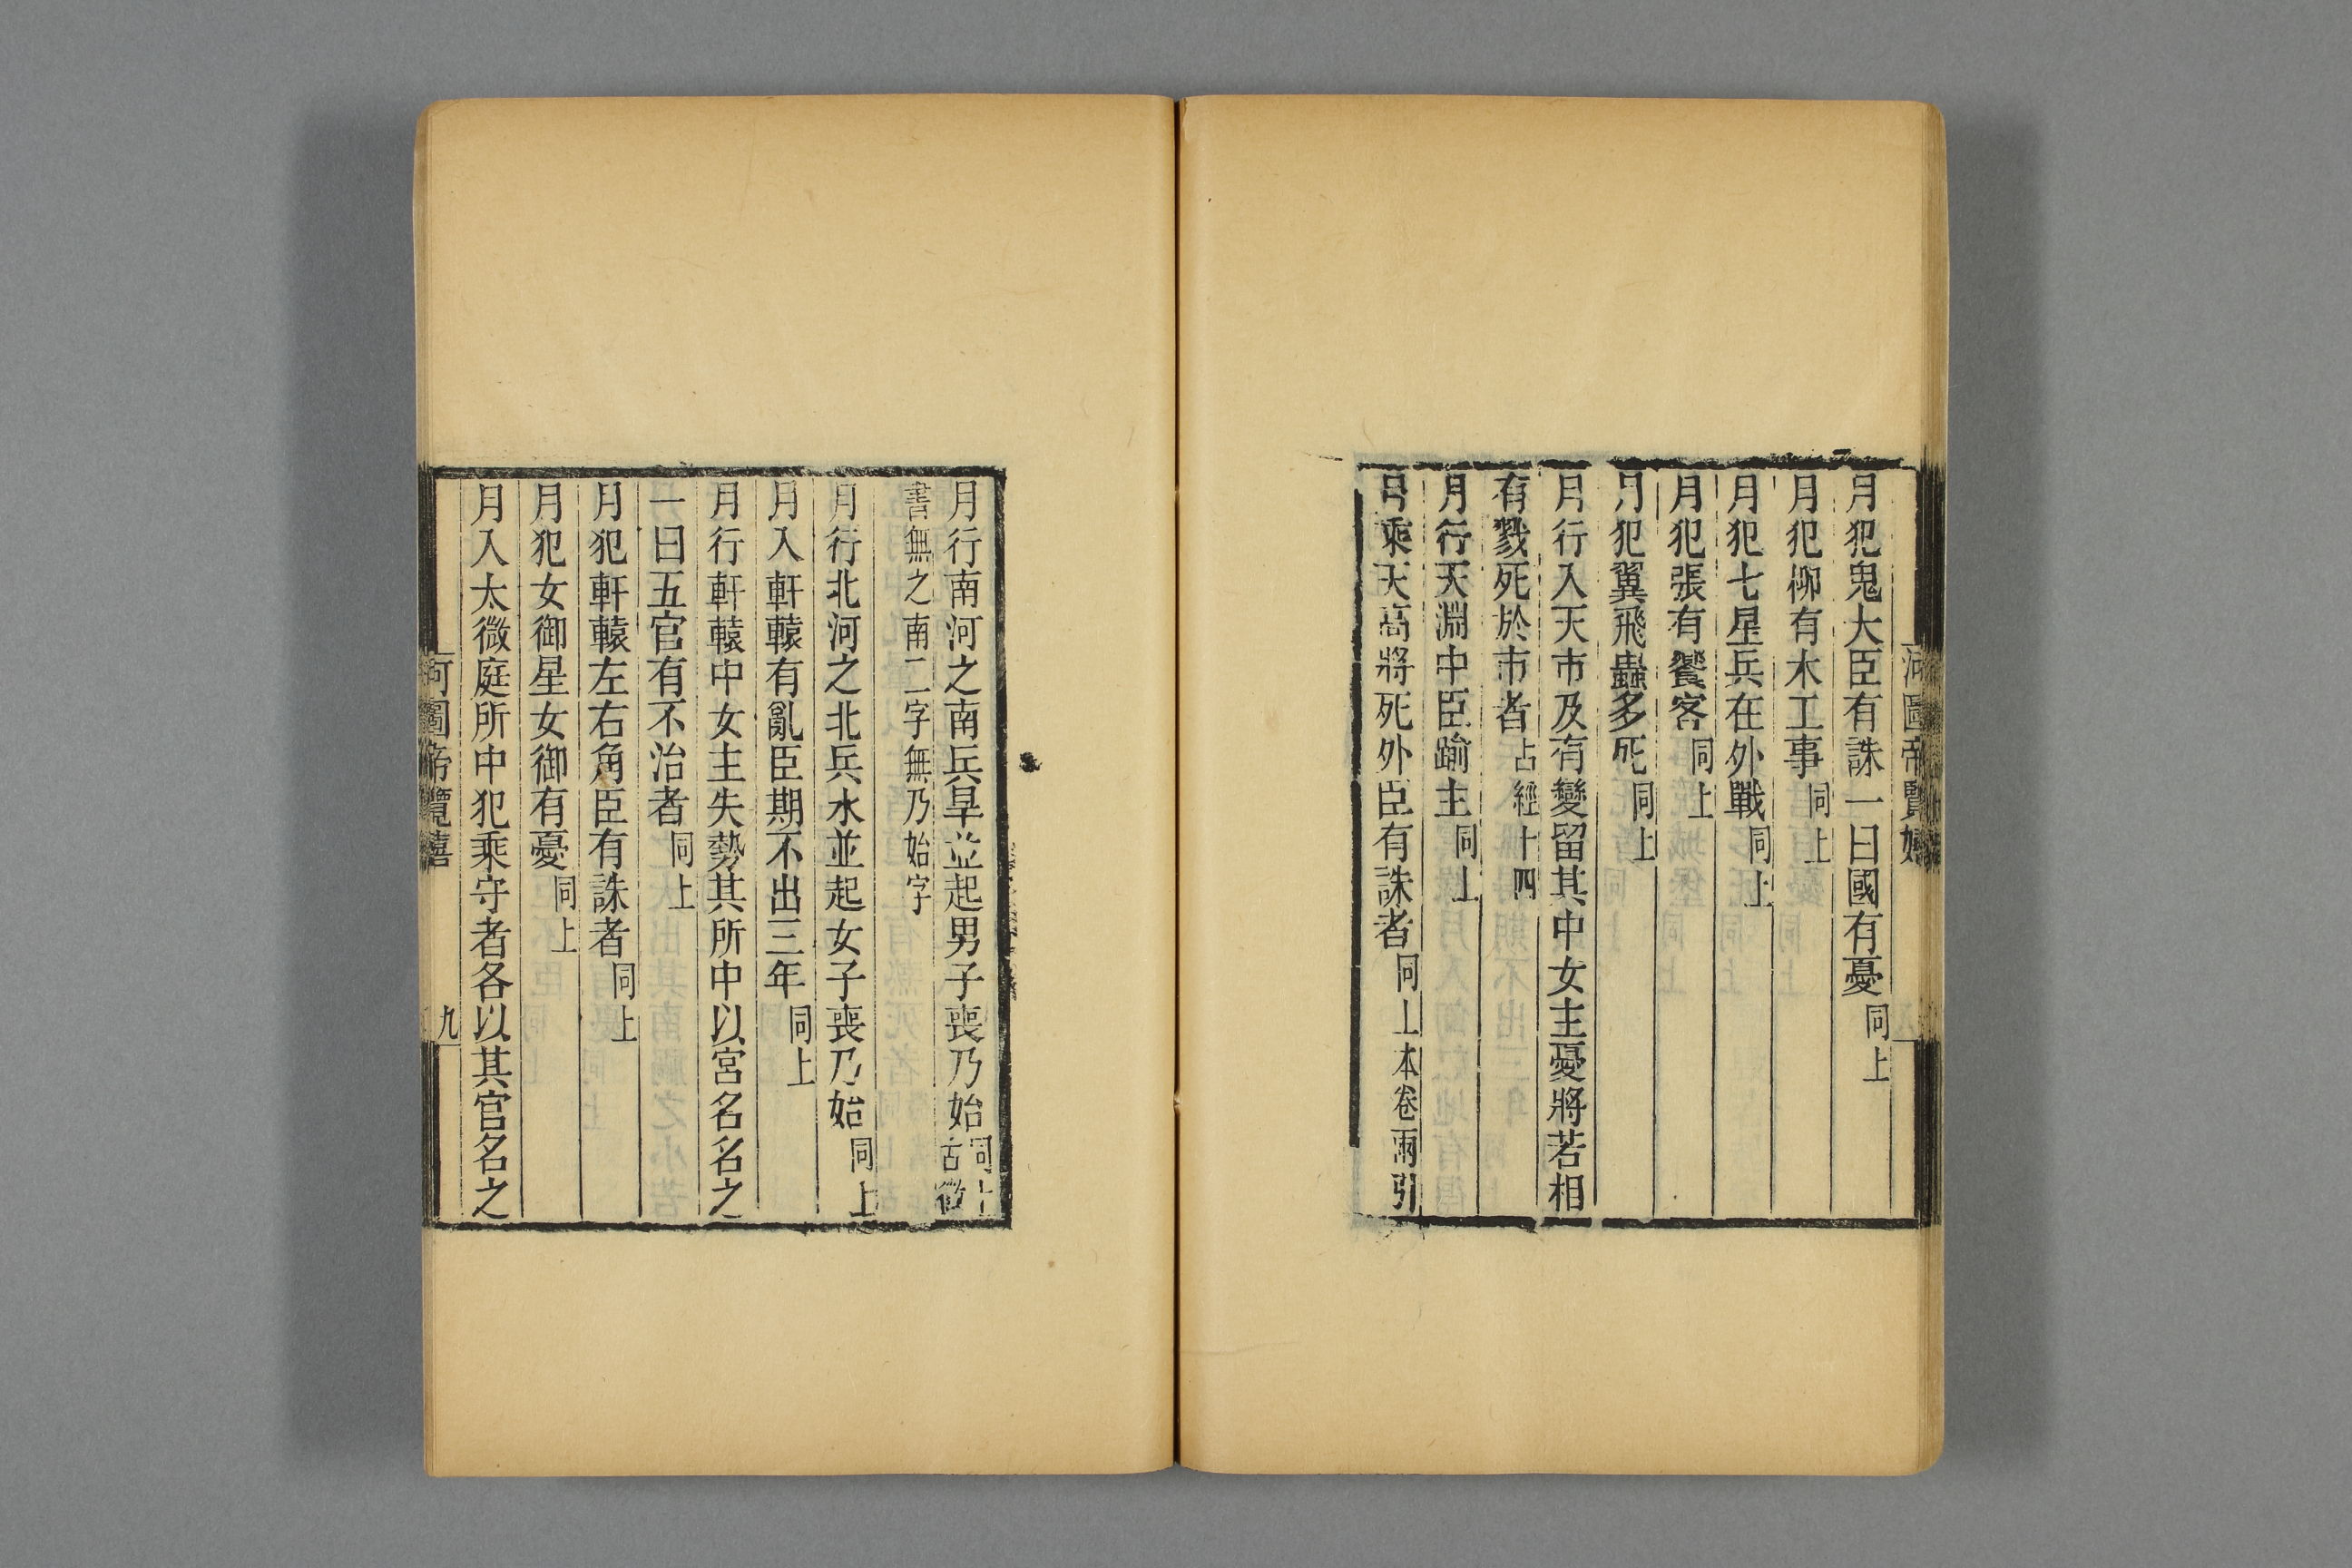 月犯鬼大臣有誅一曰國有憂同上
月犯柳有木工事同上
月犯七星兵在外戰同上
月犯張有饗客同上
月犯翼飛蟲多死同上
月行入天市及有變留其中女主憂將若相
有戮死於市者占經十四
月行天淵中臣踰主同上
月乘天高將死外臣有誅者同上本卷兩引
月行南河之南兵旱並起男子喪乃始同上古微
書無之南二字無乃始字
月行北河之北兵水並起女子喪乃始同上
月入軒轅有亂臣期不出三年同上
月行軒轅中女主失勢其所中以宮名名之
一曰五官有不治者同上
月犯軒轅左右角臣有誅者同上
月犯女御星女御有憂同上
月入太微庭所中犯乘守者各以其官名之
河圖帝覽嬉
九